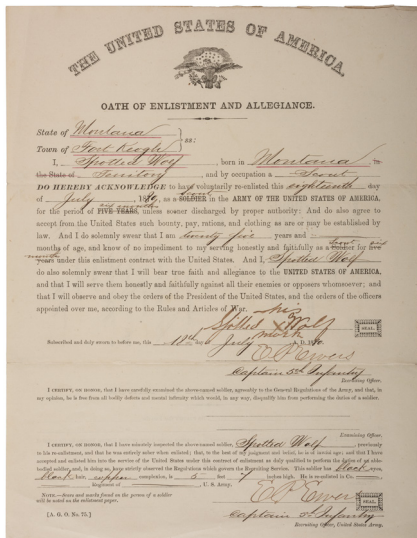 THE UNITED STATES OF AMERICA.
OATH OF ENLISTMENT AND ALLEGIANCE.
State of Montana
Town of Fort Keogh ss:
I, Spotted Wolf, born in Montana in
the State of Territory, and by occupation a Scout
DO HEREBY ACKNOWLEDGE to have voluntarily re-enlisted this eighteenth day
of July, 18 as a SOLDIER Scout in the ARMY OF THE UNITED STATES OF AMERICA,
for the period of FIVE YEARS, six months unless sooner discharged by proper authority: And do also agree to
accept from the United States such bounty, pay, rations, and clothing as are or may be established by
law. And I do solemnly swear that I am five years and
months of age, and know of no impediment to my serving honestly and faithfully as a Soldier Scout for five six
years months under this enlistment contract with the United States. And I, Spotted Wolf
do also solemnly swear that I will bear true faith and allegiance to the UNITED STATES OF AMERICA,
and that I will serve them honestly and faithfully against all their enemies or opposers whomsoever; and
that I will observe and obey the orders of the President of the United States, and the orders of the officers
appointed over me, according to the Rules and Articles of War.
his
Spotted X Wolf
mark
SEAL
Subscribed and duly sworn to before me, this 18th day of July A. D. 18
E P Ewers
Captain 5th Infantry
Recruiting Officer.
I CERTIFY, ON HONOR, that I have carefully examined the above-named soldier, agreeably to the General Regulations of the Army, and that, in
my opinion, he is free from all bodily defects and mental infirmity which would, in any way, disqualify him from performing the duties of a soldier.
Examining Officer.
I CERTIFY, ON HONOR, that I have minutely inspected the above-named soldier, Spotted Wolf previously
to his re-enlistment, and that he was entirely sober when enlisted; that, to the best of my judgment and belief, he is of lawful age; and that I have
accepted and enlisted him into the service of the United States under this contract of enlistment as duly qualified to perform the duties of an able-
bodied soldier, and, in doing so, have strictly observed the Regulations which govern the Recruiting Service. This soldier has black eyes,
black hair, copper complexion, is 5 feet 7 inches high. He is re-enlisted in Co.
Regiment of , U. S. Army.
NOTE.—Scars and marks found on the person of a soldier
will be noted on the enlistment paper.
E P Ewers
SEAL
Captain 5th Infantry
[A. G. O. No. 73.]
Recruiting Officer, United States Army.